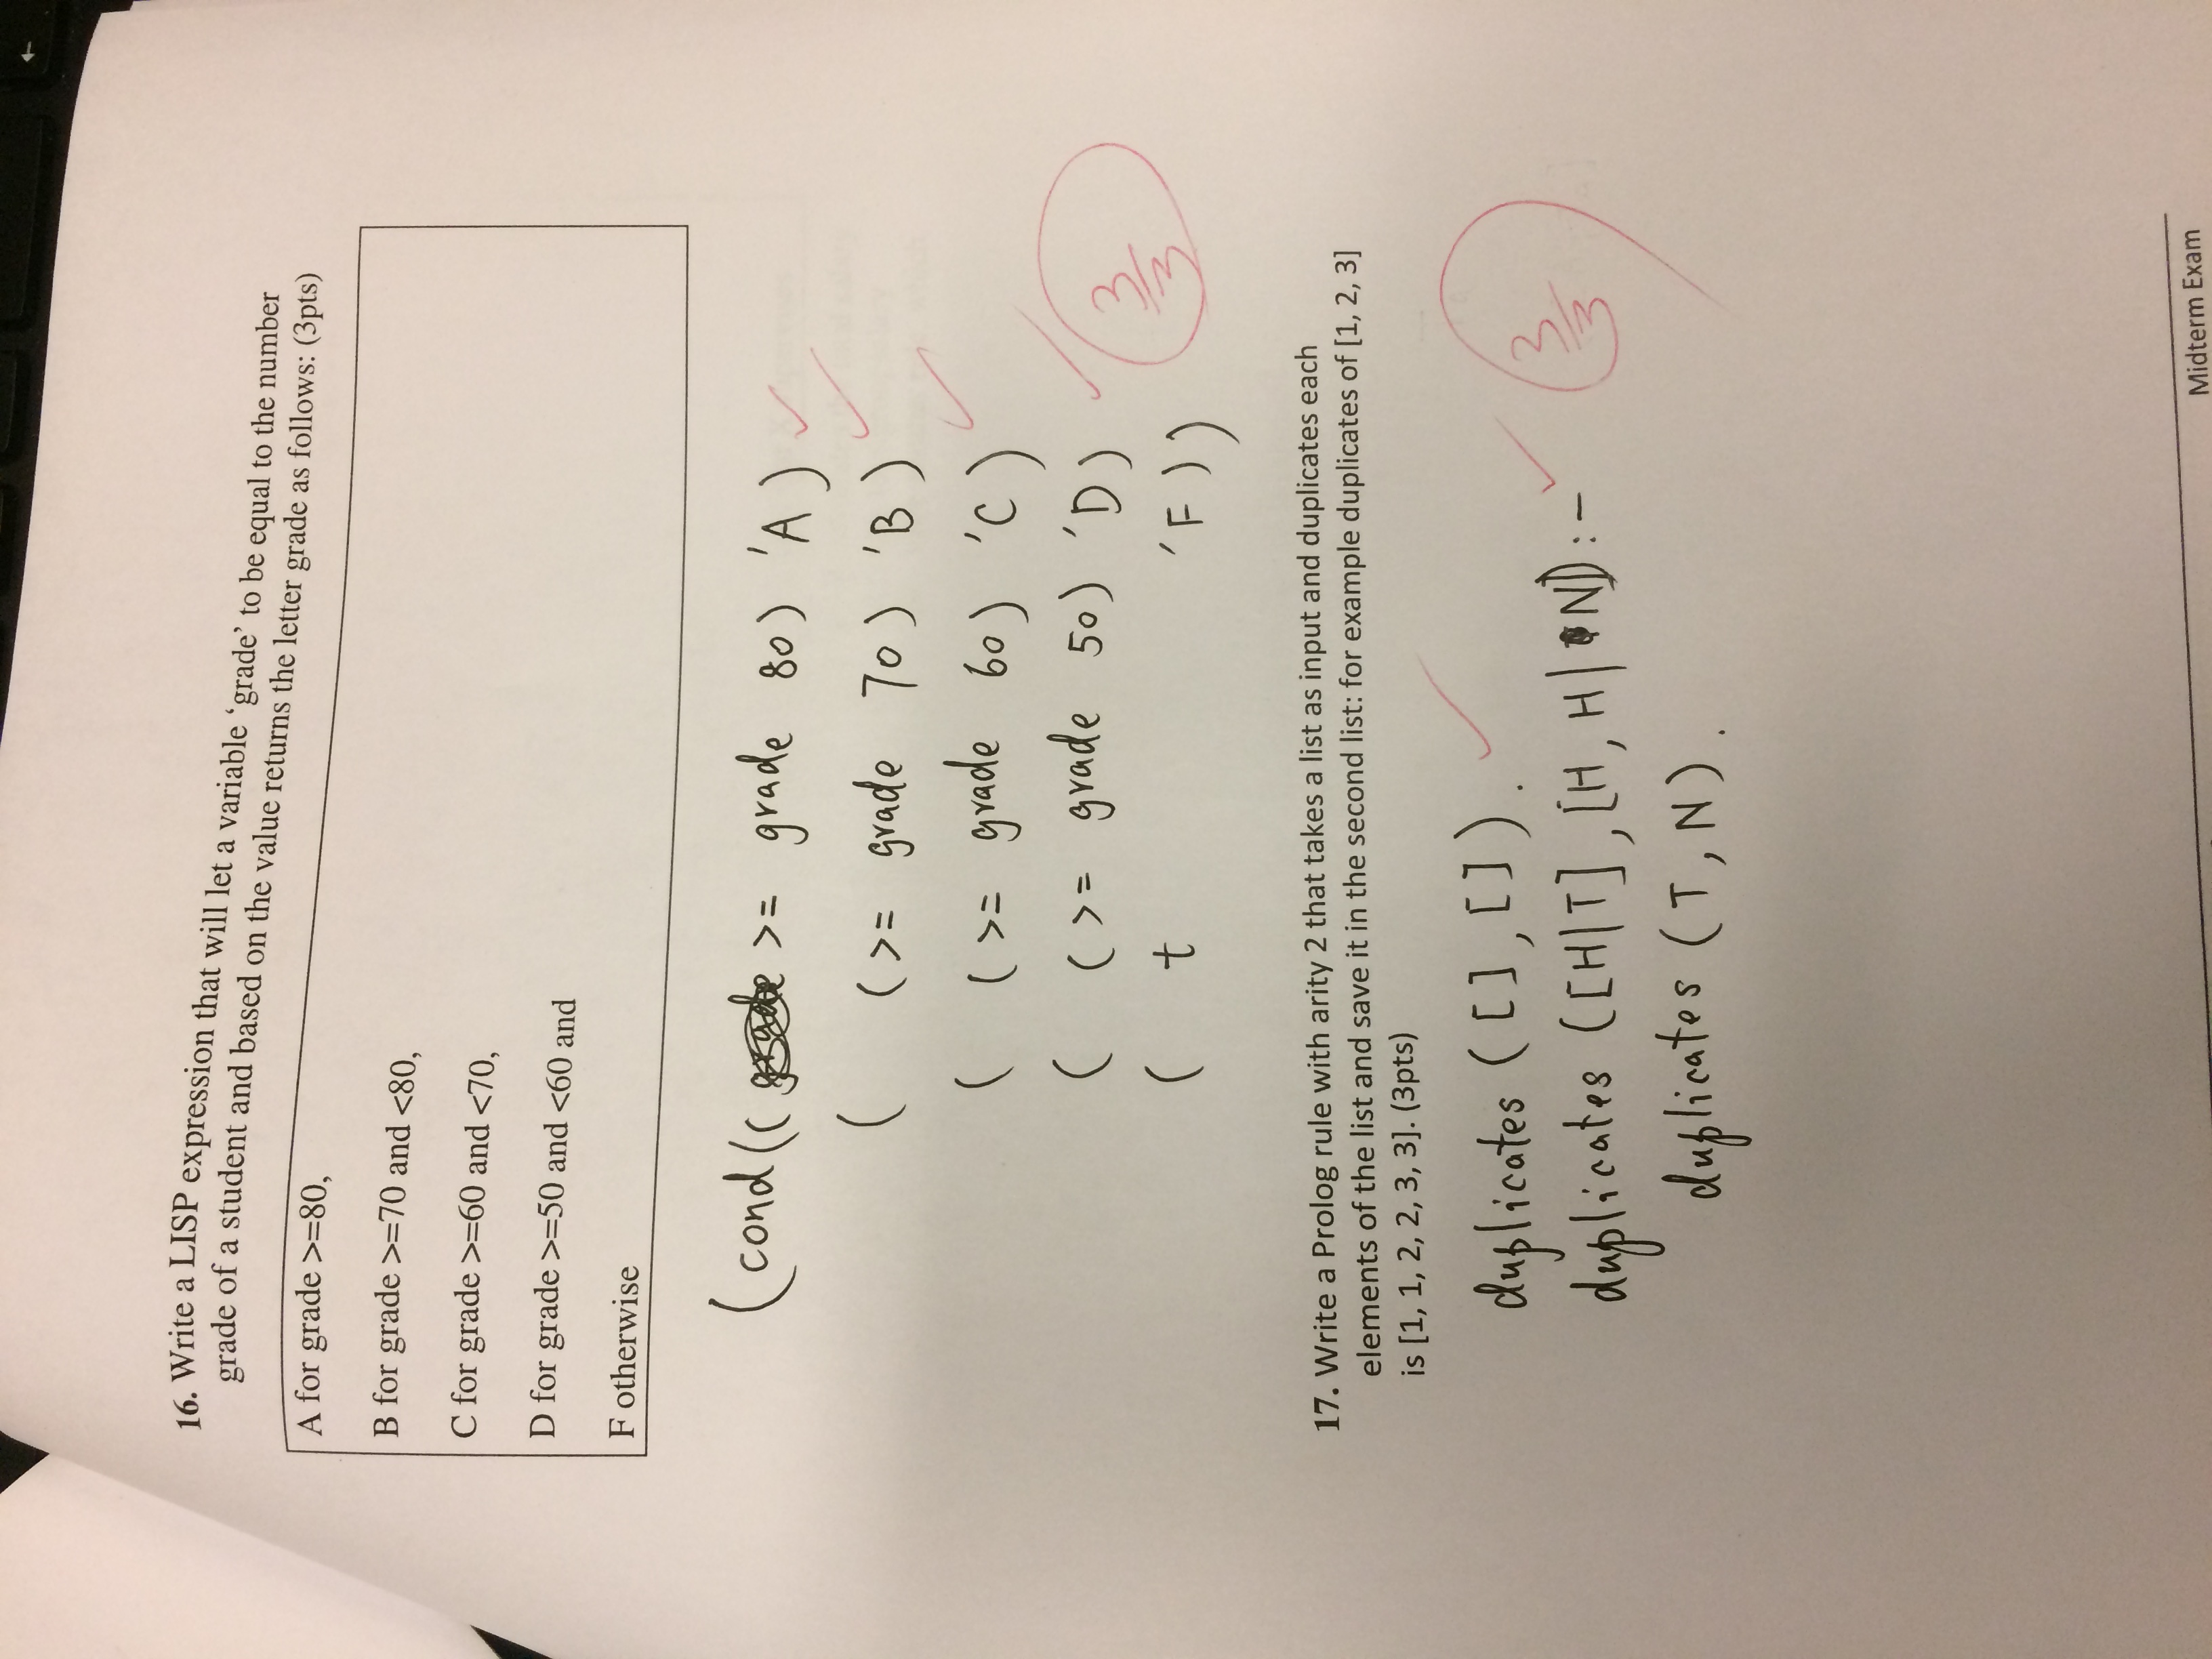 16. Write a LISP expression that will let a variable ‘grade’ to be equal to the number
grade of a student and based on the value returns the letter grade as follows: (3pts)
A for grade >=80,
B for grade >=70 and <80,
C for grade >=60 and <70,
D for grade >=50 and <60 and
F otherwise
(cond (( >= grade 80) 'A)
( (>= grade 70) 'B)
( (>= grade 60) 'C)
( (>= grade 50) 'D)
( t 'F))
3/3
17. Write a Prolog rule with arity 2 that takes a list as input and duplicates each
elements of the list and save it in the second list: for example duplicates of [1, 2, 3]
is [1, 1, 2, 2, 3, 3]. (3pts)
duplicates ([], []).
duplicates ([H|T], [H, H|N]) :-
duplicates (T, N).
3/3
Midterm Exam